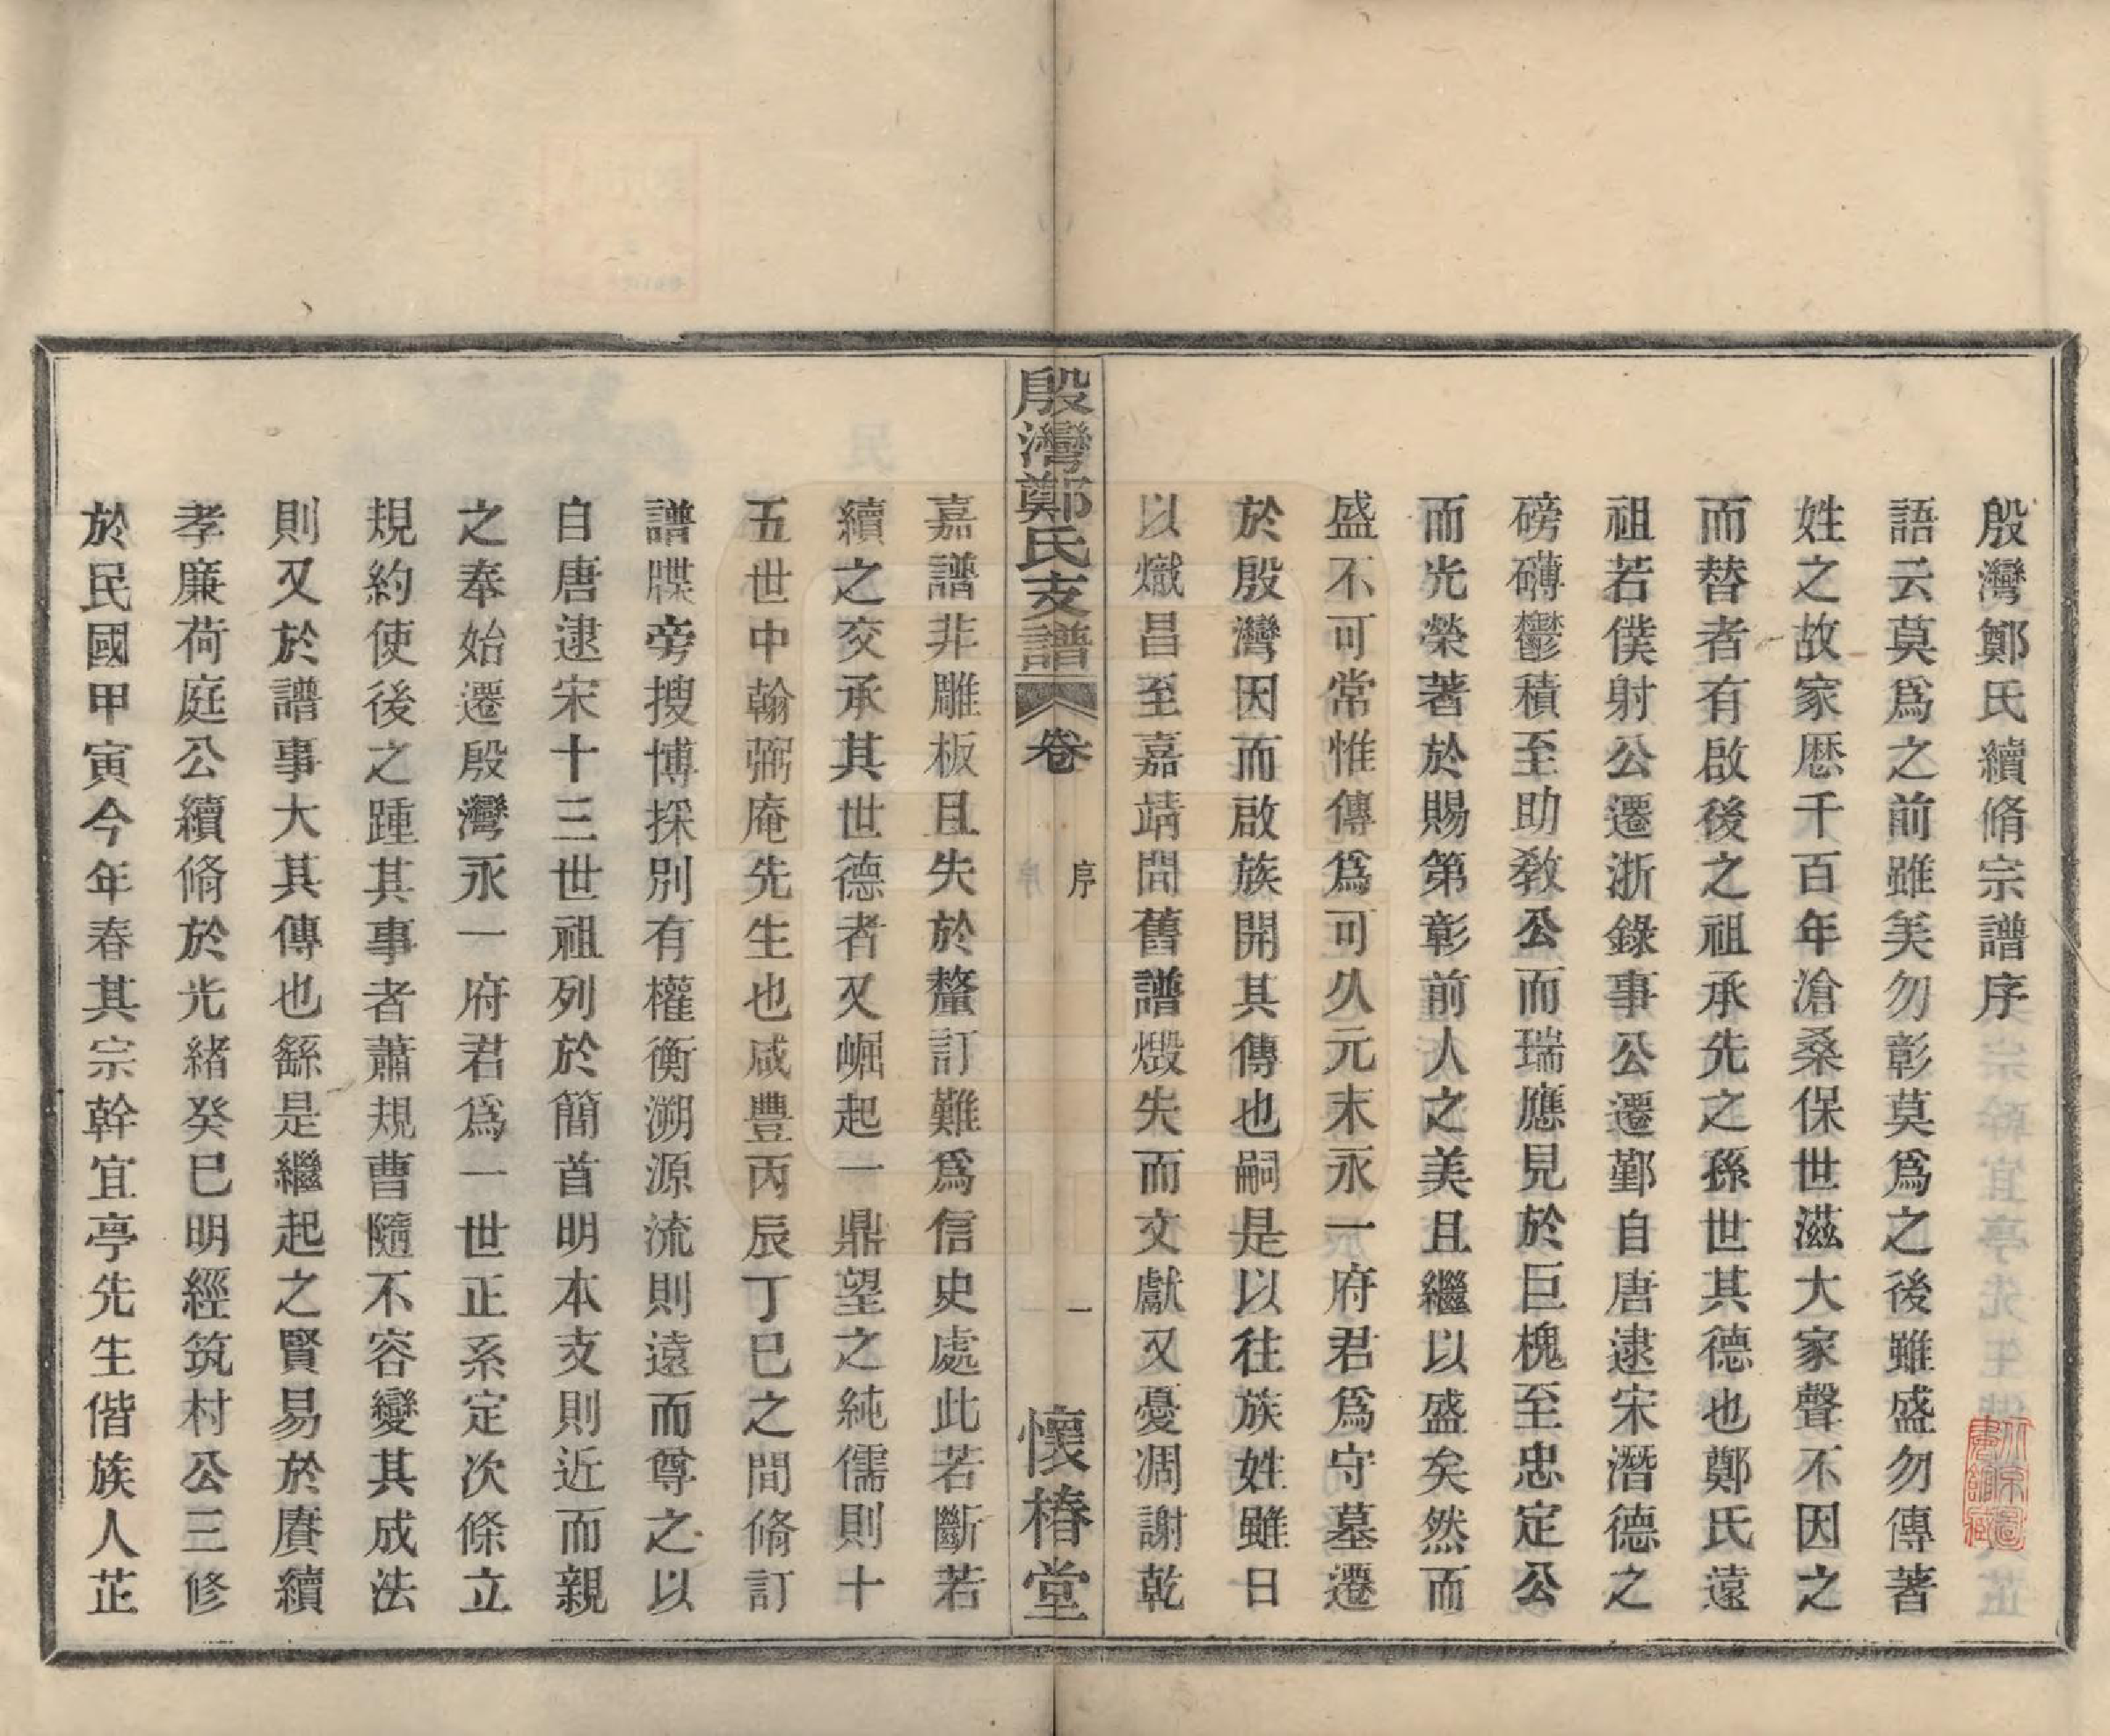 殷灣鄭氏續脩宗譜序
語云莫爲之前雖美勿彰莫爲之後雖盛勿傳著
姓之故家歷千百年滄桑保世滋大家聲不因之
而替者有啟後之祖承先之孫世其德也鄭氏遠
祖若僕射公遷浙錄事公遷鄞自唐逮宋潛德之
磅礴鬱積至助教公而瑞應見於巨槐至忠定公
而光榮著於賜第彰前人之美且繼以盛矣然而
盛不可常惟傳爲可久元末永一府君爲守墓遷
於殷灣因而啟族開其傳也嗣是以往族姓雖日
以熾昌至嘉靖間舊譜燬失而文獻又憂凋謝乾
殷灣鄭氏支譜
卷
序
一
懷椿堂
嘉譜非雕板且失於釐訂難爲信史處此若斷若
續之交承其世德者又崛起一鼎望之純儒則十
五世中翰弼庵先生也咸豐丙辰丁巳之間脩訂
譜牒旁搜博採別有權衡溯源流則遠而尊之以
自唐逮宋十三世祖列於簡首明本支則近而親
之奉始遷殷灣永一府君爲一世正系定次條立
規約使後之踵其事者蕭規曹隨不容變其成法
則又於譜事大其傳也繇是繼起之賢易於賡續
孝廉荷庭公續脩於光緒癸巳明經筑村公三修
於民國甲寅今年春其宗幹宜亭先生偕族人芷